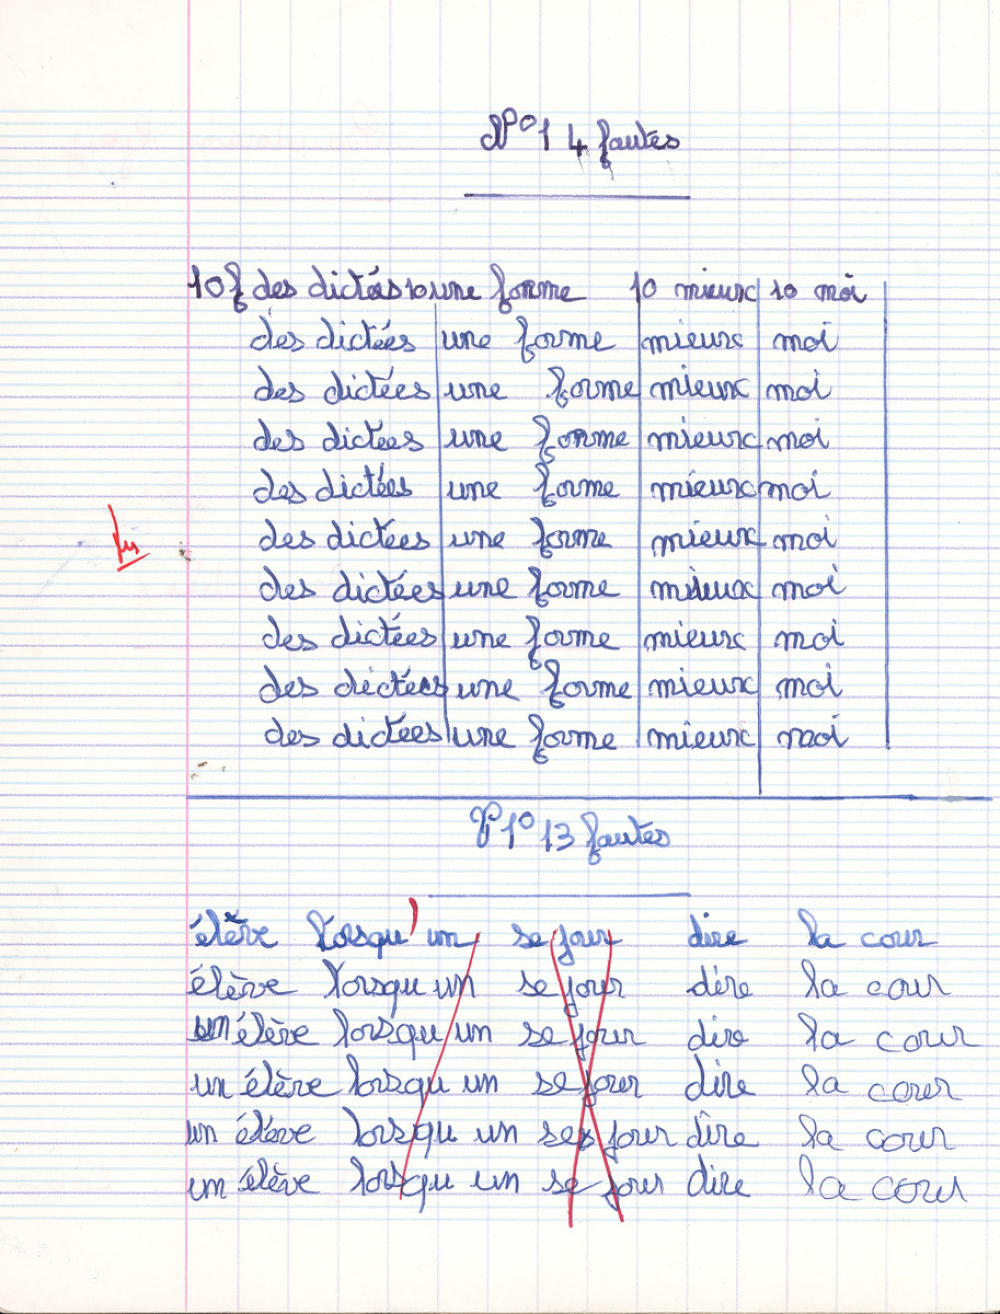 N°1 4 fautes
10f des dictées 10 une forme 10 mieux 10 moi
des dictées une forme mieux moi
des dictées une forme mieux moi
des dictées une forme mieux moi
des dictées une forme mieux moi
lu des dictées une forme mieux moi
des dictées une forme mieux moi
des dictées une forme mieux moi
des dictées une forme mieux moi
des dictées une forme mieux moi
N°1 13 fautes
élève lorsqu'un se jour dire la cour
élève lorsqu un se jour dire la cour
un élève lorsqu un se jour dire la cour
un élève lorsqu un se jour dire la cour
un élève lorsqu un se jour dire la cour
un élève lorsqu un se jour dire la cour